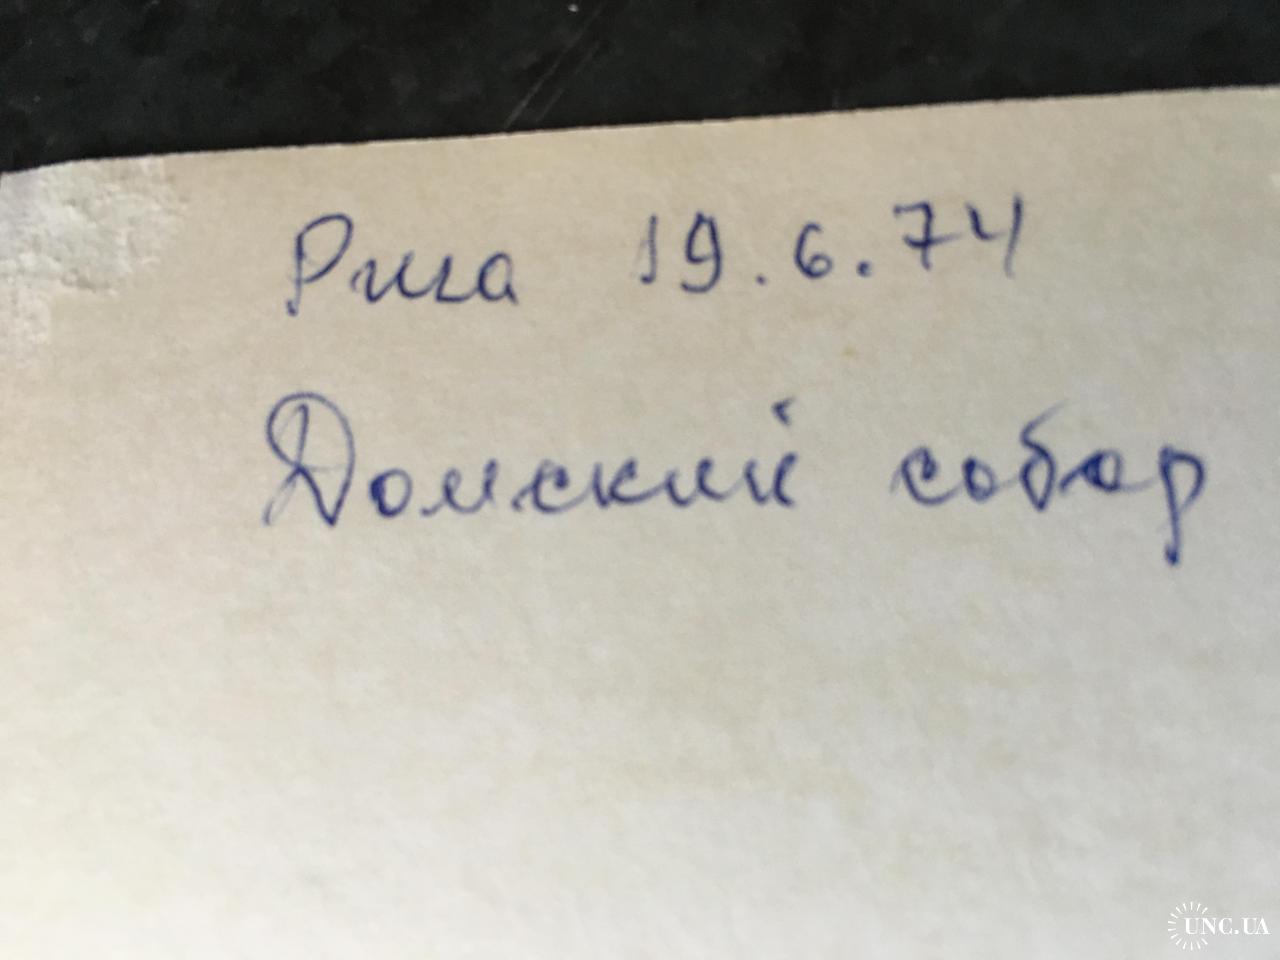 Рига 19.6.74
Домский собор
UNC.UA